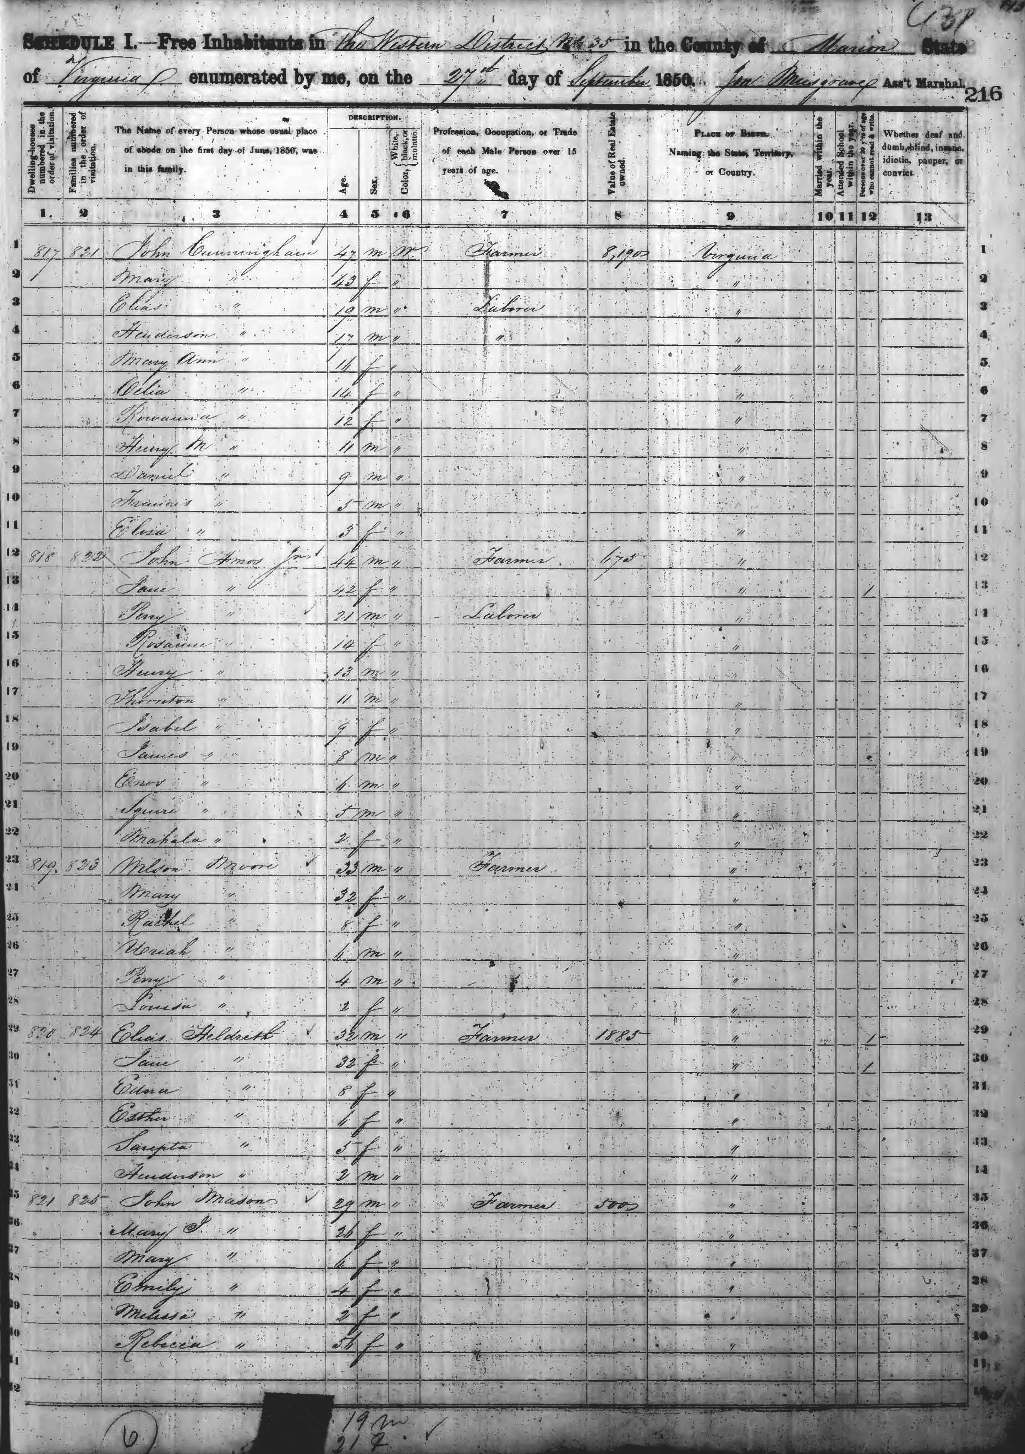 216
SCHEDULE I.—Free Inhabitants in The Western District No 35 in the County of Marion State
of Virginia enumerated by me, on the 27th day of September 1850. Musgrave Ass't Marshal.
Dwelling-houses numbered in the order of visitation.
Families numbered in the order of visitation.
The Name of every Person whose usual place of abode on the first day of June, 1850, was in this family.
DESCRIPTION.
Age.
Sex.
Color, White, black, or mulatto.
Profession, Occupation, or Trade of each Male Person over 15 years of age.
Value of Real Estate owned.
PLACE OF BIRTH. Naming the State, Territory, or Country.
Married within the year.
Attended School within the year.
Persons over 20 y'rs of age who cannot read & write.
Whether deaf and dumb, blind, insane, idiotic, pauper, or convict.
1. 2 3 4 5 6 7 8 9 10 11 12 13
1 817 821 John Cunningham 47 m W Farmer Virginia 1
2 Mary " 43 f " " 2
3 Elias " 19 m " Laborer " 3
4 Henderson " 17 m " " " 4
5 Mary Ann " f " " 5
6 Celia " 14 f " " 6
7 Rowanna " 12 f " " 7
8 Henry M " 11 m " " 8
9 Daniel " 9 m " " 9
10 Francis " 5 m " " 10
11 Eliza " 3 f " " 11
12 818 822 John Amos Jr 44 m " Farmer 175 " 12
13 Jane " 42 f " " 1 13
14 Perry " 21 m " Laborer " 14
15 Rosanna " 14 f " " 15
16 Henry " 13 m " " 16
17 Thornton " 11 m " " 17
18 Isabel " 9 f " " 18
19 James " " 8 m " " 19
20 Enos " 6 m " " 20
21 Squire " 5 m " " 21
22 Mahala " 2 f " " 22
23 819 823 Wilson Moore 33 m " Farmer " 23
24 Mary " 32 f " " 24
25 Rachel " 8 f " " 25
26 Uriah " 6 m " " 26
27 Perry " 4 m " " 27
28 Louisa " 2 f " " 28
29 820 824 Elias Hildreth 32 m " Farmer 1885 " 1 29
30 Jane " 32 f " " 1 30
31 Edna " 8 f " " 31
32 Esther " 6 f " " 32
33 Sarepta " 5 f " " 33
34 Henderson " 2 m " " 34
35 821 825 John Mason 29 m " Farmer 500 " 35
36 Mary J. " 26 f " " 36
37 Mary " 6 f " " 37
38 Emily " 4 f " " 38
39 Melissa " 2 f " " 39
40 Rebecca " 56 f " " 40
41 41
42 42
6
19 m
21 f